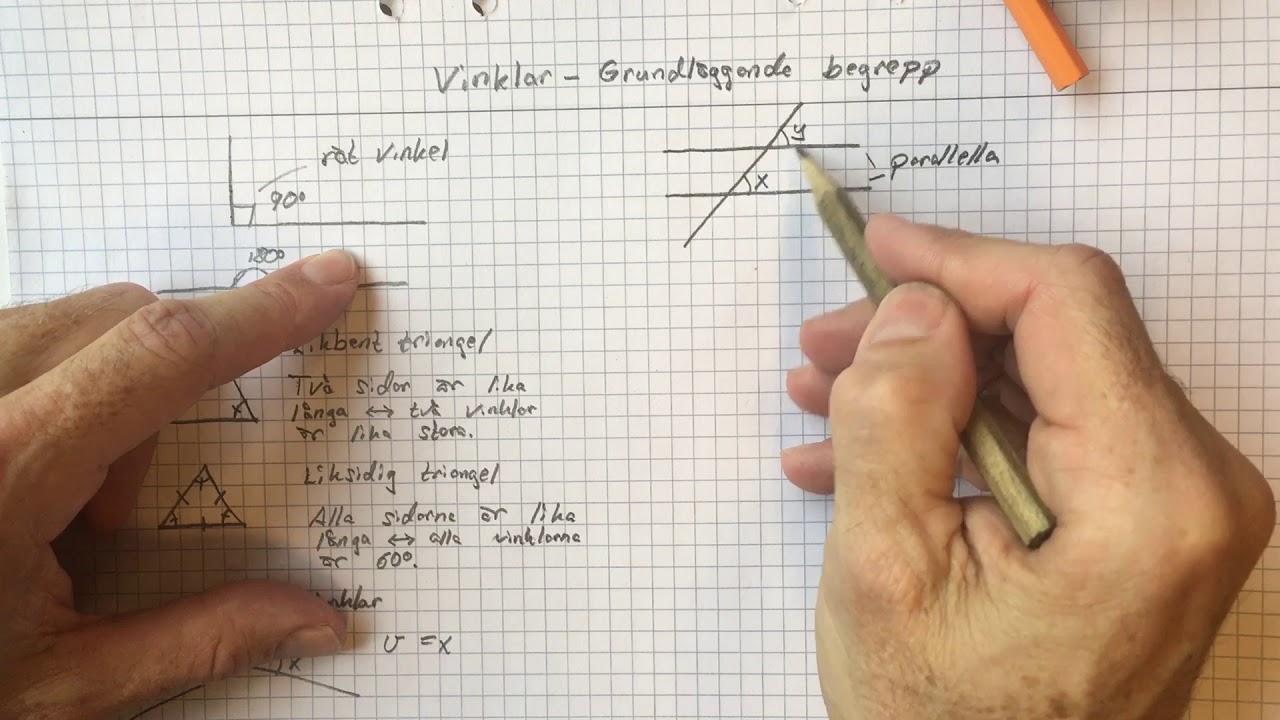 Vinklar – Grundläggande begrepp
rät vinkel
90°
180°
Likbent triangel
x
Två sidor är lika
långa ↔ två vinklar
är lika stora.
Liksidig triangel
Alla sidorna är lika
långa ↔ alla vinklarna
är 60°.
v = x
x
y
x
parallella